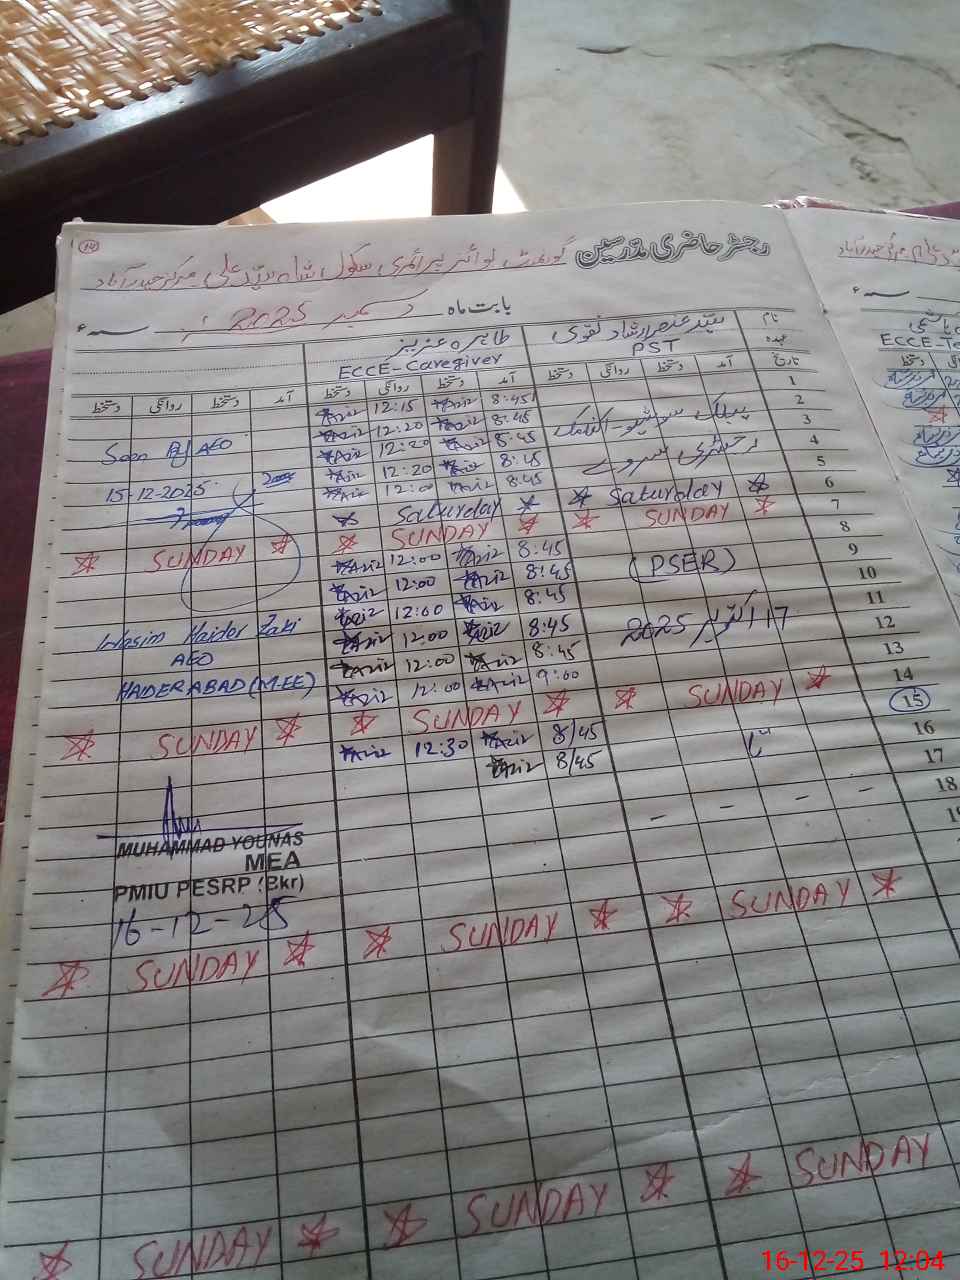 14
رجسٹر حاضری مدرسین گورنمنٹ لوئر پرائمری سکول شاہ سیّد علی مرکز حیدرآباد
بابت ماہ دسمبر 2025 سنہ ء
نام سیّد عنصر ارشاد نقوی طاہرہ عزیز
عہدہ PST ECCE-Caregiver
تاریخ آمد دستخط روانگی دستخط آمد دستخط روانگی دستخط آمد دستخط روانگی دستخط
1 8:45 Aziz 12:15 Aziz
2 پبلک سوشیو اکنامک 8:45 Aziz 12:20 Aziz
3 8:45 Aziz 12:20 Aziz Seen By AEO
4 رجسٹری سروے 8:45 Aziz 12:20 Aziz
5 8:45 Aziz 12:00 Aziz 15-12-2025
6 Saturday Saturday
7 SUNDAY SUNDAY SUNDAY
8 8:45 Aziz 12:00 Aziz
9 (PSER) 8:45 Aziz 12:00 Aziz
10 8:45 Aziz 12:00 Aziz Wasim Haider Zaki
11 17 اکتوبر 2025 8:45 Aziz 12:00 Aziz AEO
12 8:45 Aziz 12:00 Aziz HAIDERABAD (M-EE)
13 9:00 Aziz 12:00 Aziz
14 SUNDAY SUNDAY SUNDAY
15 تا 8/45 Aziz 12:30 Aziz
16 8/45 Aziz
17 - - - - -
18
MUHAMMAD YOUNAS
MEA
PMIU PESRP (Bkr)
16-12-25
SUNDAY SUNDAY SUNDAY
SUNDAY SUNDAY SUNDAY
مرکز حیدرآباد
ECCE-Te
دستخط
16-12-25 12:04